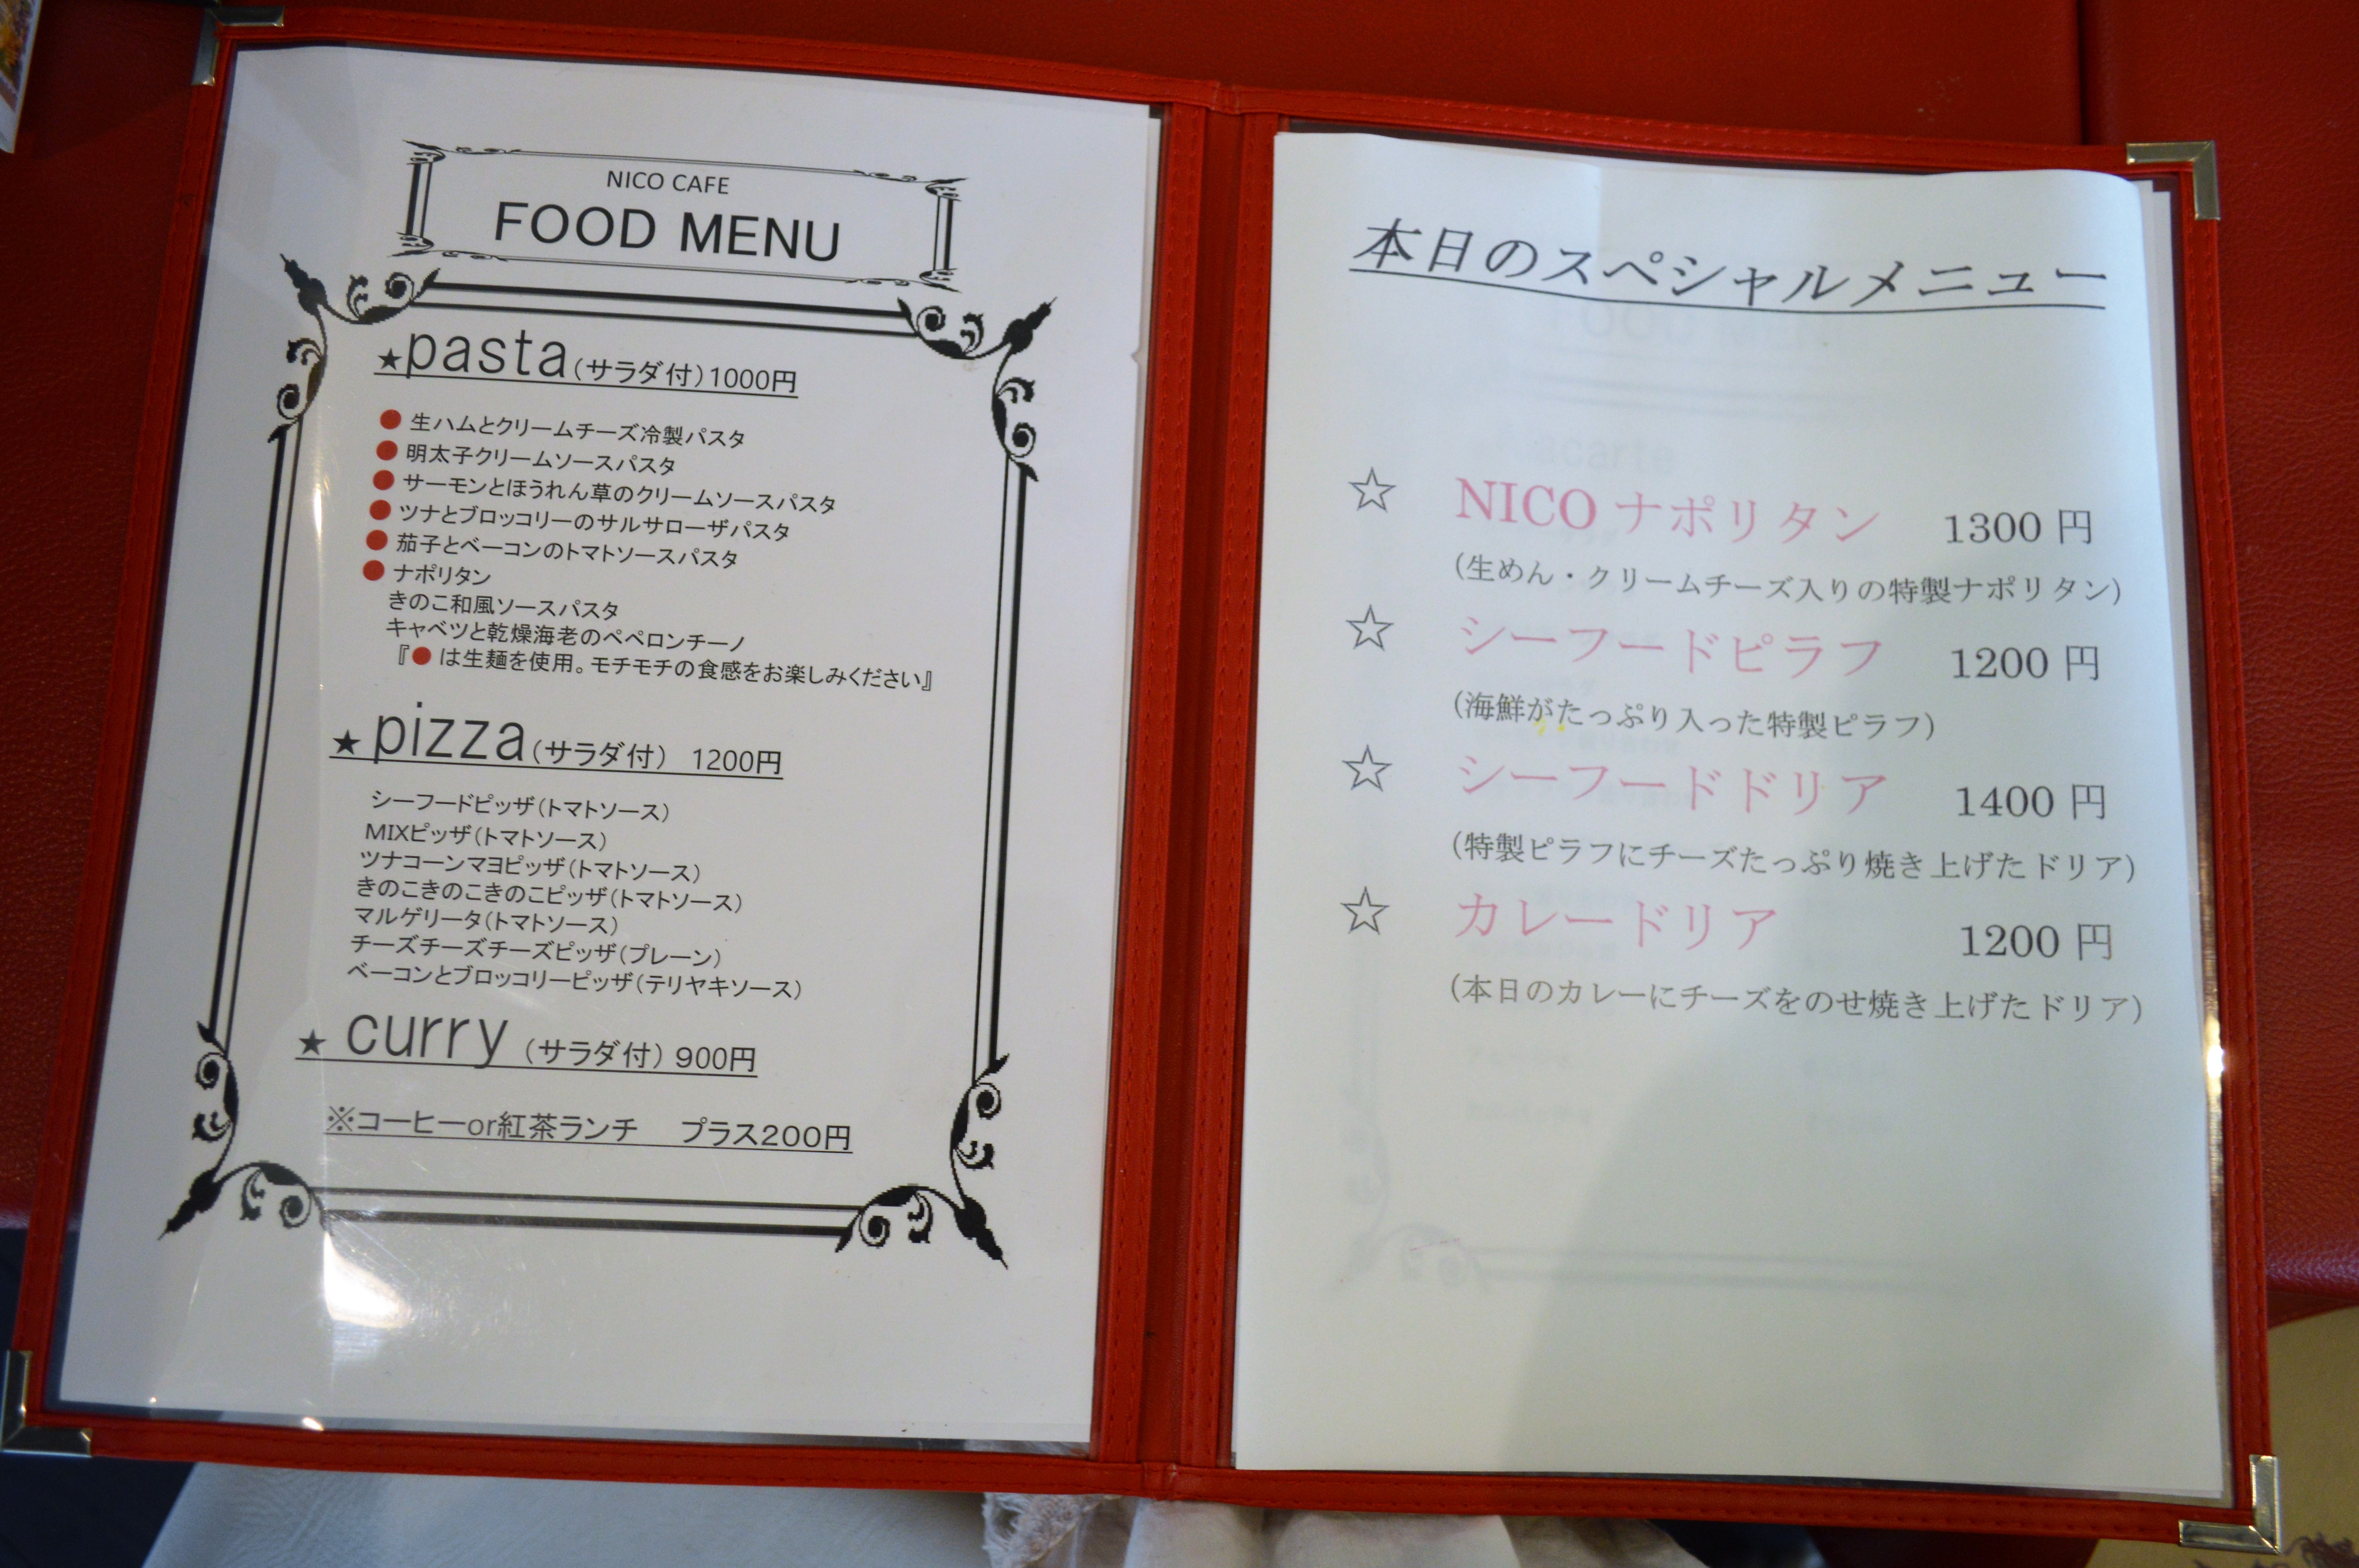 NICO CAFE
FOOD MENU
★pasta(サラダ付)1000円
● 生ハムとクリームチーズ冷製パスタ
● 明太子クリームソースパスタ
● サーモンとほうれん草のクリームソースパスタ
● ツナとブロッコリーのサルサローザパスタ
● 茄子とベーコンのトマトソースパスタ
● ナポリタン
きのこ和風ソースパスタ
キャベツと乾燥海老のペペロンチーノ
『● は生麺を使用。モチモチの食感をお楽しみください』
★ pizza(サラダ付) 1200円
シーフードピッザ(トマトソース)
MIXピッザ(トマトソース)
ツナコーンマヨピッザ(トマトソース)
きのこきのこきのこピッザ(トマトソース)
マルゲリータ(トマトソース)
チーズチーズチーズピッザ(プレーン)
ベーコンとブロッコリーピッザ(テリヤキソース)
★ curry (サラダ付) 900円
※コーヒーor紅茶ランチ プラス200円
本日のスペシャルメニュー
☆ NICO ナポリタン 1300 円
(生めん・クリームチーズ入りの特製ナポリタン)
☆ シーフードピラフ 1200 円
(海鮮がたっぷり入った特製ピラフ)
☆ シーフードドリア 1400 円
(特製ピラフにチーズたっぷり焼き上げたドリア)
☆ カレードリア 1200 円
(本日のカレーにチーズをのせ焼き上げたドリア)